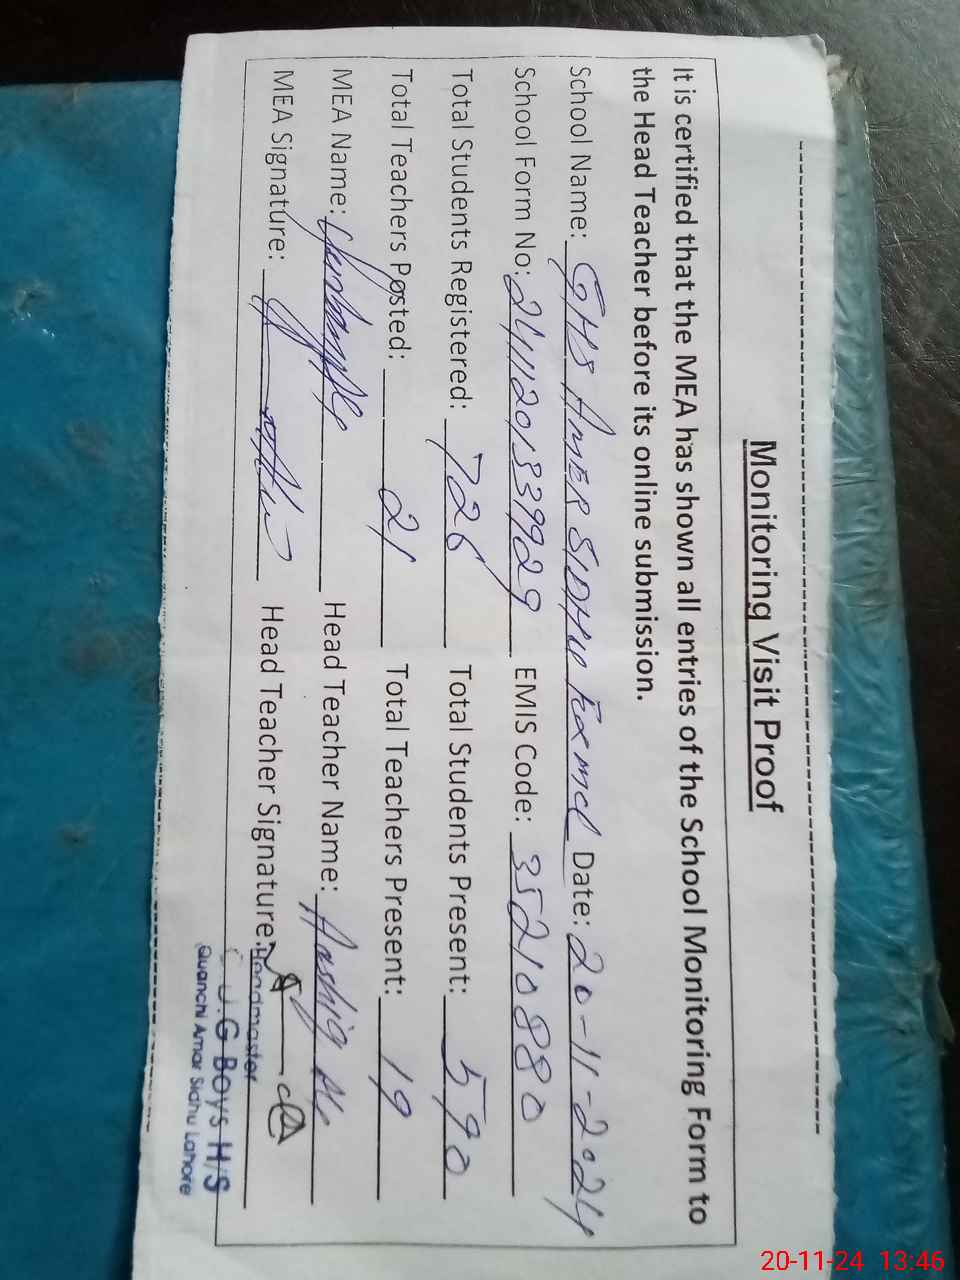 Monitoring Visit Proof
It is certified that the MEA has shown all entries of the School Monitoring Form to
the Head Teacher before its online submission.
School Name: GHS AMER SIDHU Date: 20-11-2024
School Form No: EMIS Code: 35210880
Total Students Registered: 726 Total Students Present: 590
Total Teachers Posted: 21 Total Teachers Present: 19
MEA Name: Head Teacher Name: Aashiq Ali
MEA Signature: Head Teacher Signature:
Headmaster
G Boys H/S
Quanchi Amar Sidhu Lahore
20-11-24 13:46